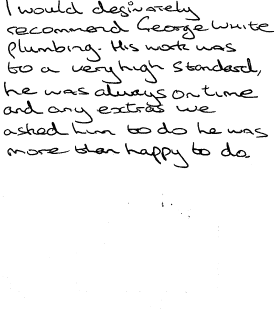 I would desinately
recommend George White
Plumbing. His work was
to a very high standard,
he was always on time
and any extras we
asked him to do he was
more than happy to do